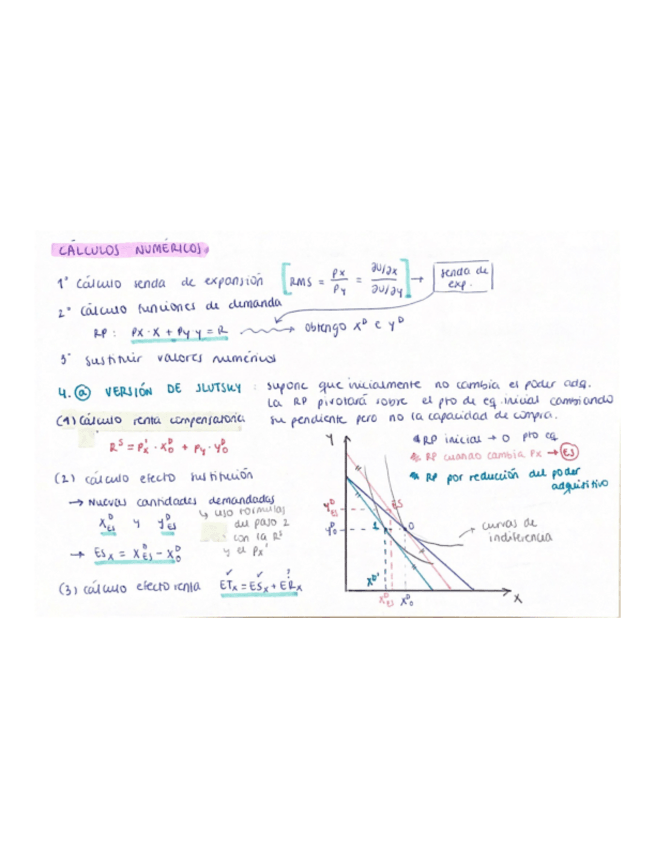 CÁLCULOS NUMÉRICOS.
1º Cálculo senda de expansión [RMS = Px/Py = ∂U/∂x / ∂U/∂y] → senda de exp.
2º Cálculo funciones de demanda
RP: Px·X + Py y = R → obtengo X^D e Y^D
3º Sustituir valores numéricos
4. ⓐ VERSIÓN DE SLUTSKY: supone que inicialmente no cambia el poder adq.
La RP pivotará sobre el pto de eq. inicial cambiando
(1) Cálculo renta compensatoria su pendiente pero no la capacidad de compra.
R^S = Px'·X_0^D + Py·Y_0^D
(2) Cálculo efecto sustitución
→ Nuevas cantidades demandadas
X_ES^D y Y_ES^D
↳ uso fórmulas
del paso 2
con la R^S
y el Px'
→ ES_X = X_ES^D - X_0^D
(3) Cálculo efecto renta ET_X = ES_X + ER_X
✓ ✓ ?
RP inicial → 0 pto eq
RP cuando cambia Px → ES
RP por reducción del poder
adquisitivo
Y
ES
Y_ES^D
Y_0^D
1
0
→ curvas de
indiferencia
X^D'
X_ES^D X_0^D
X